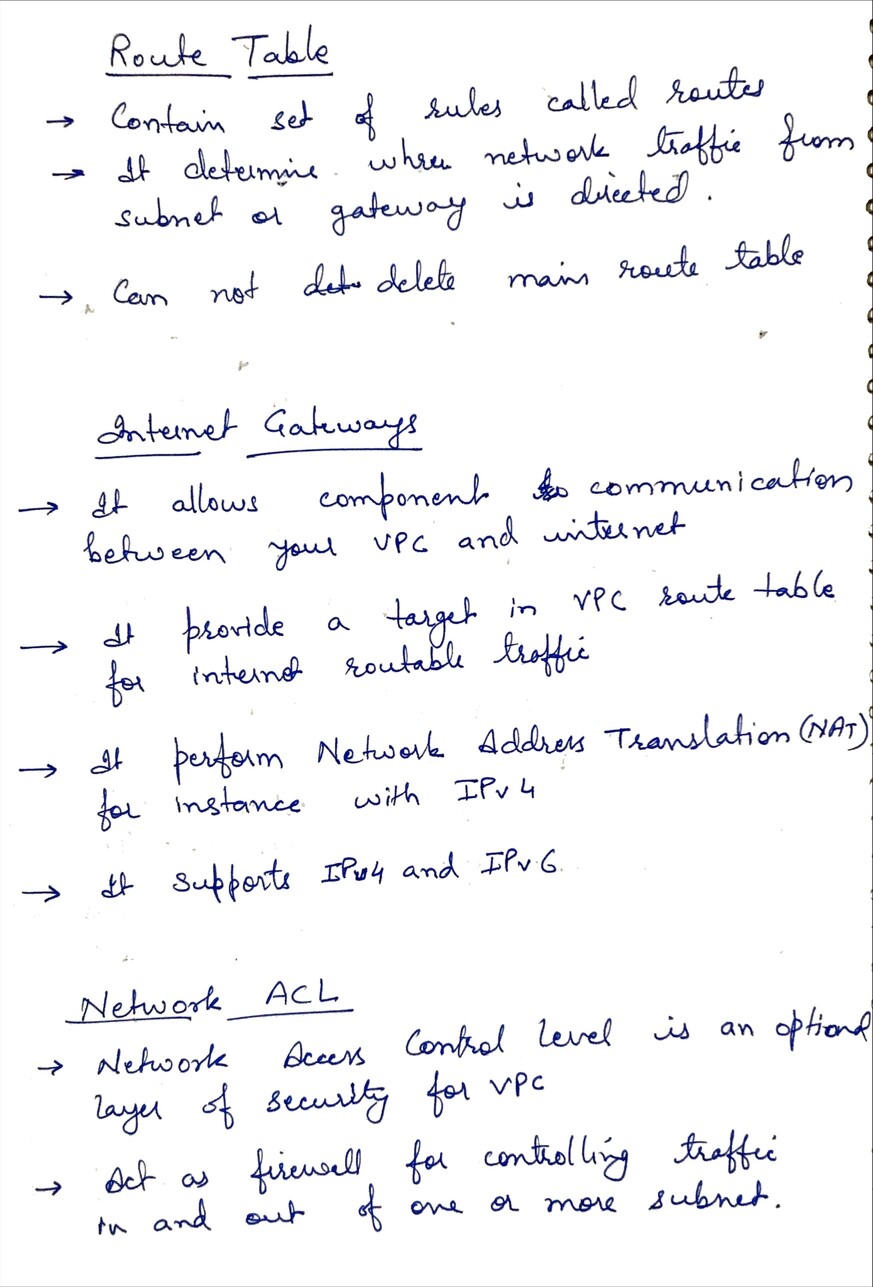 Route Table
→ Contain set of rules called routes
→ It determine where network traffic from
subnet or gateway is directed.
→ Can not delete main route table
Internet Gateways
→ It allows component communication
between your VPC and internet
→ It provide a target in VPC route table
for internet routable traffic
→ It perform Network Address Translation (NAT)
for instance with IPv4
→ It supports IPv4 and IPv6.
Network ACL
→ Network Access Control Level is an optional
layer of security for VPC
→ Act as firewall for controlling traffic
in and out of one or more subnet.